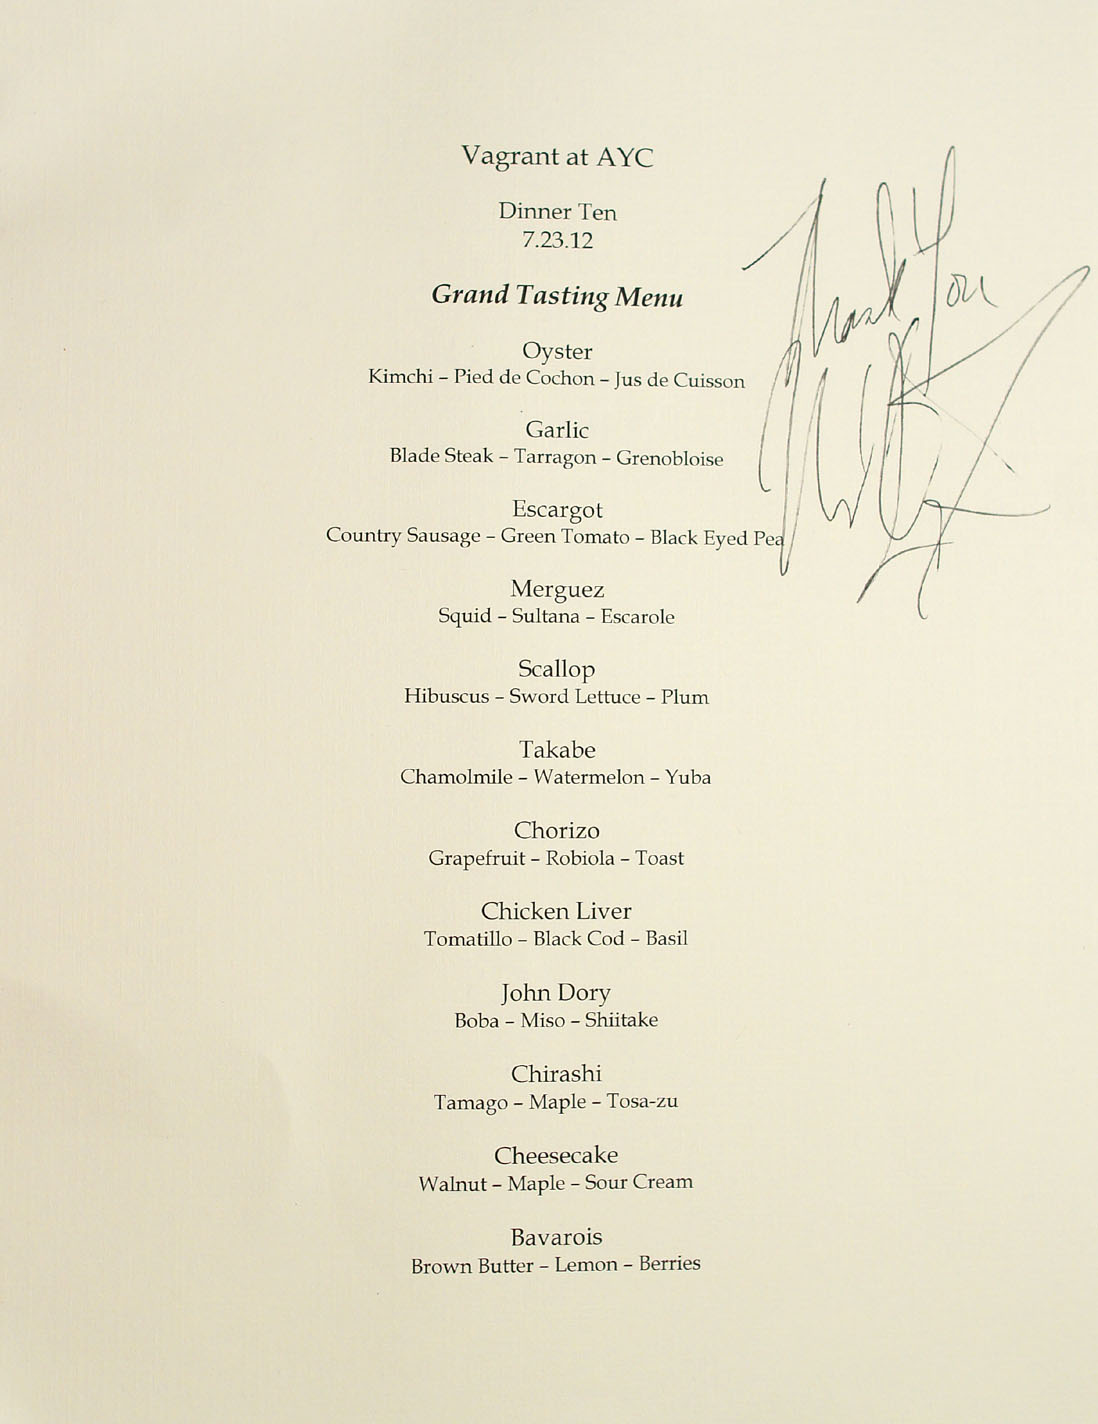 Vagrant at AYC
Dinner Ten
7.23.12
Grand Tasting Menu
Thank You
Oyster
Kimchi – Pied de Cochon – Jus de Cuisson
Garlic
Blade Steak – Tarragon – Grenobloise
Escargot
Country Sausage – Green Tomato – Black Eyed Pea
Merguez
Squid – Sultana – Escarole
Scallop
Hibuscus – Sword Lettuce – Plum
Takabe
Chamolmile – Watermelon – Yuba
Chorizo
Grapefruit – Robiola – Toast
Chicken Liver
Tomatillo – Black Cod – Basil
John Dory
Boba – Miso – Shiitake
Chirashi
Tamago – Maple – Tosa-zu
Cheesecake
Walnut – Maple – Sour Cream
Bavarois
Brown Butter – Lemon – Berries